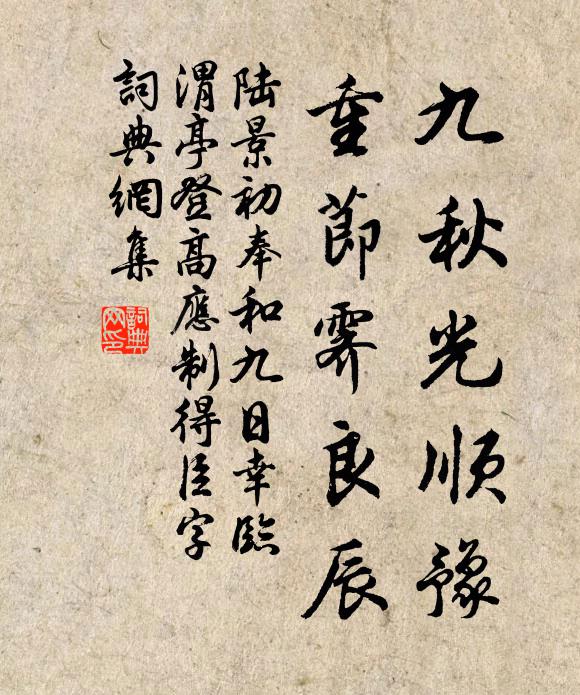 九秋光順豫
重節霽良辰
陸景初奉和九日幸臨
渭亭登高應制得臣字
詞典網集
詞典網印